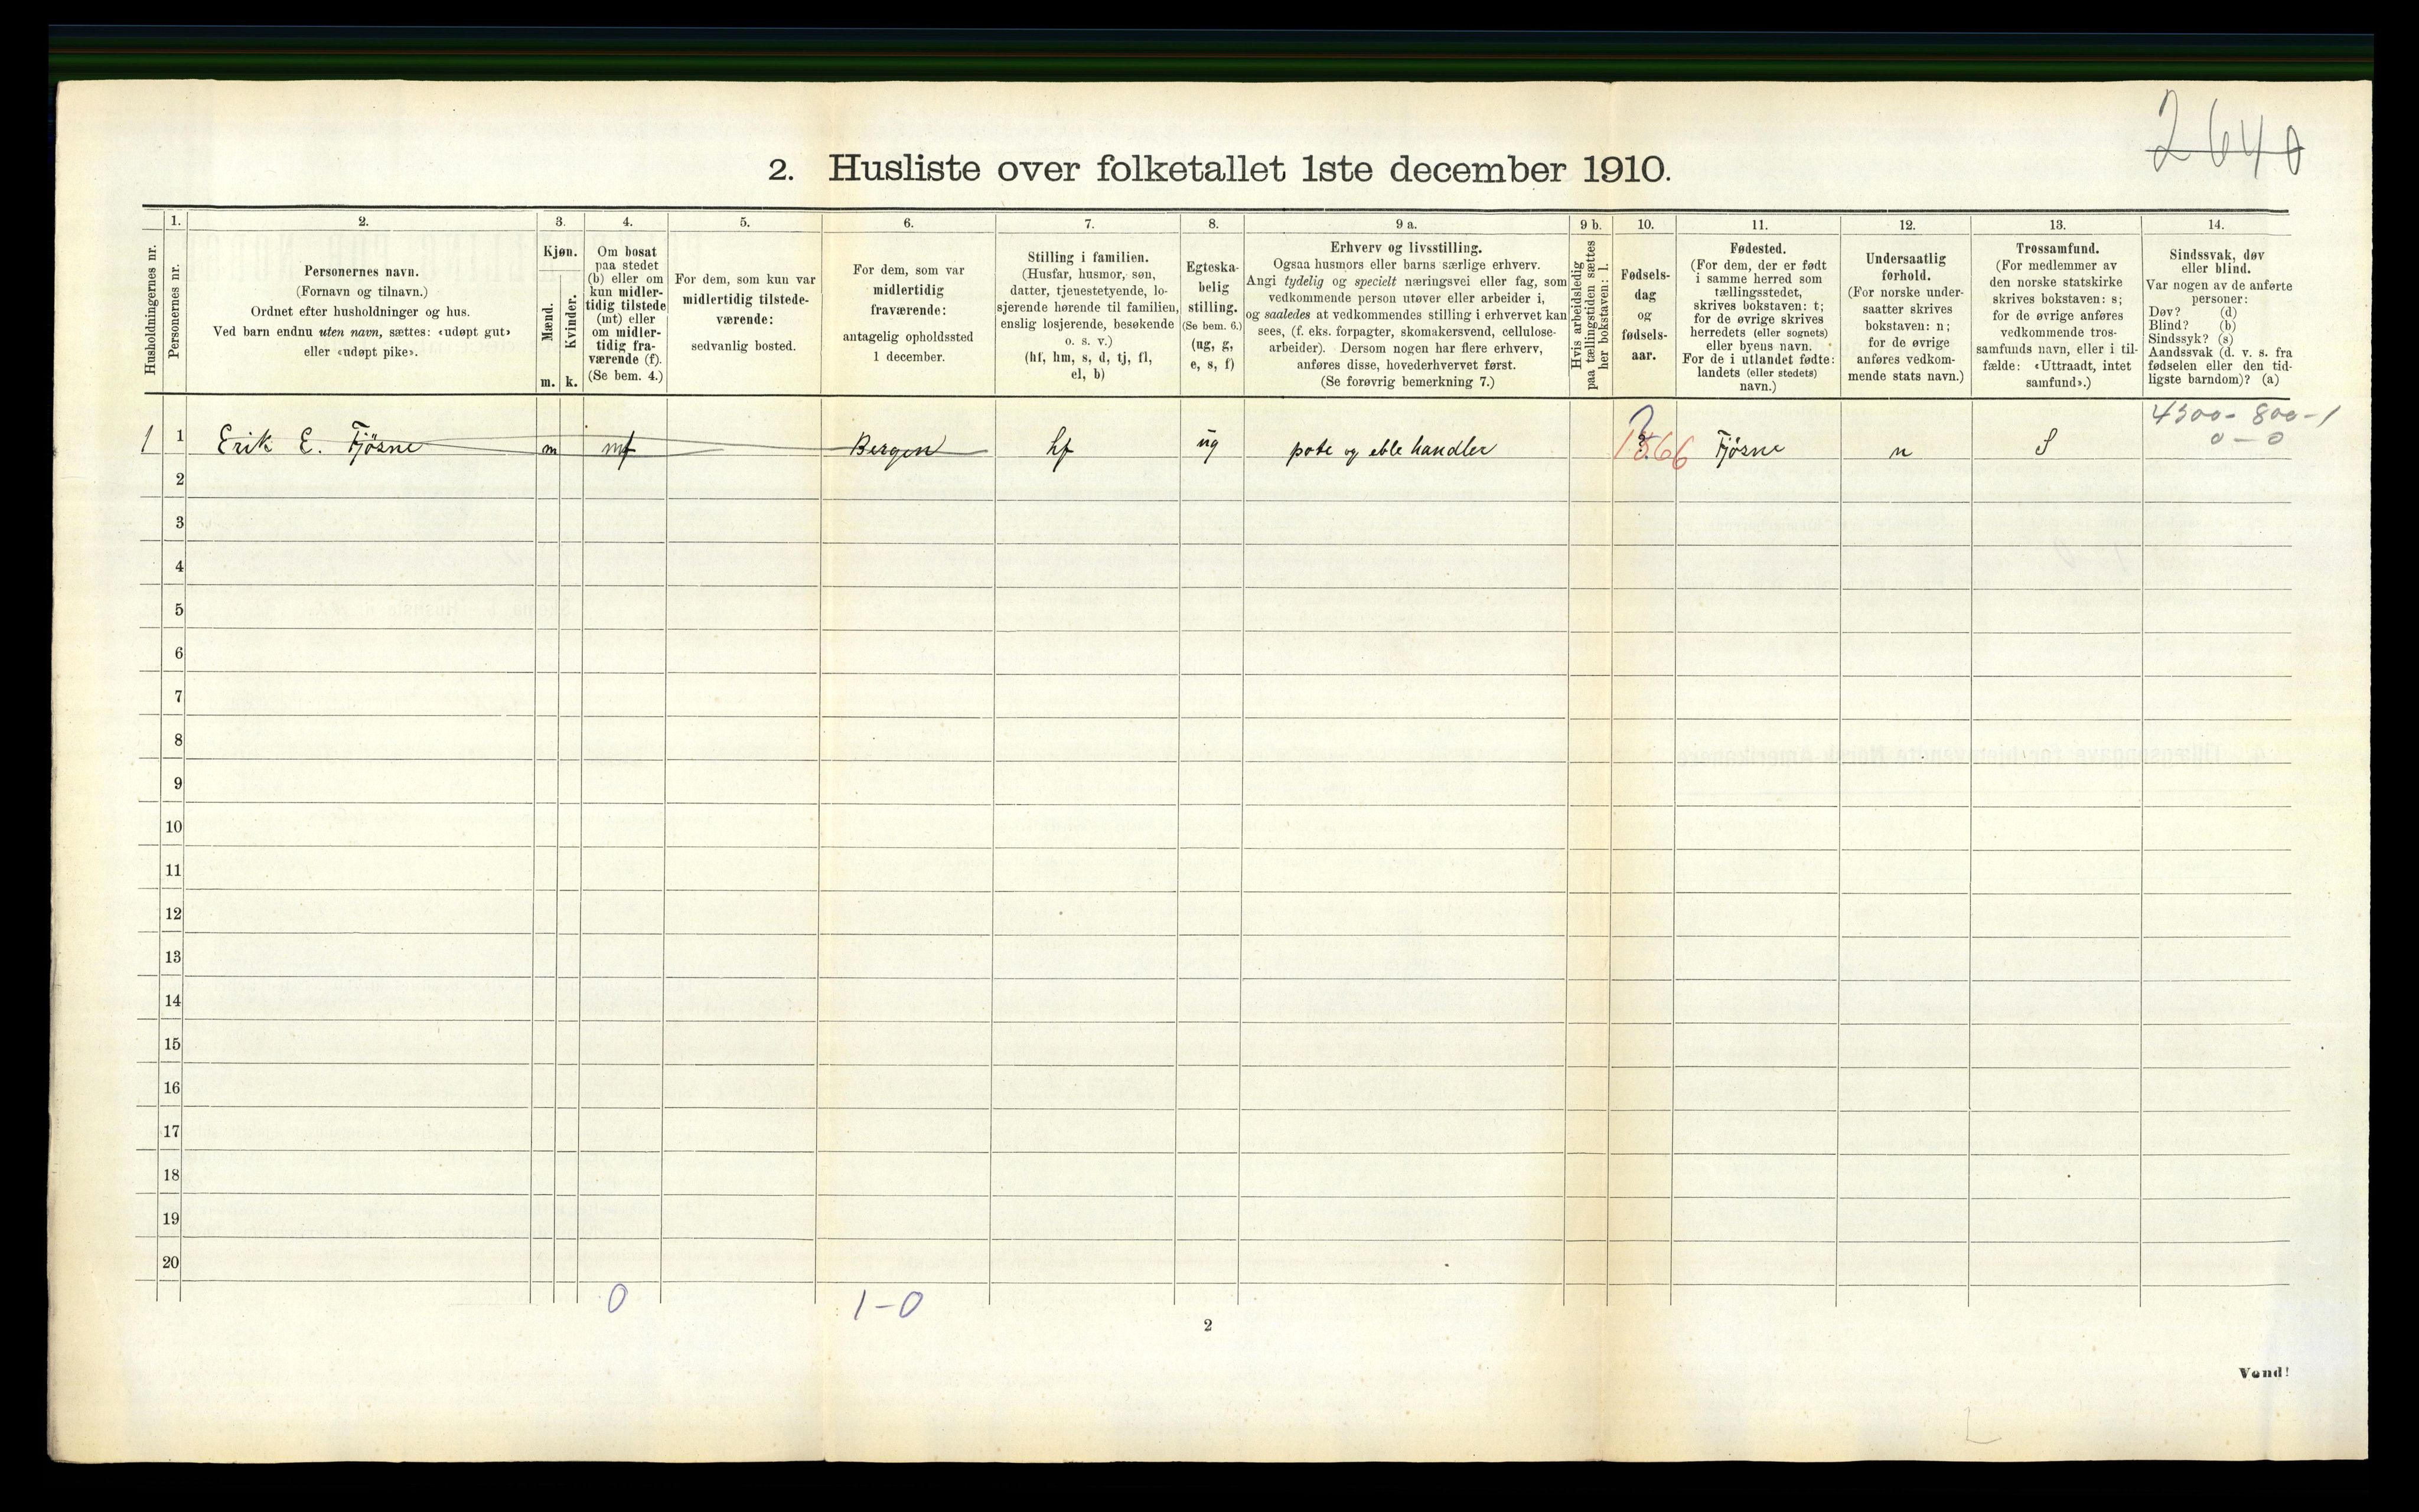 2640
2. Husliste over folketallet 1ste december 1910.
Husholdningernes nr.
1.
Personernes nr.
2.
Personernes navn.
(Fornavn og tilnavn.)
Ordnet efter husholdninger og hus.
Ved barn endnu uten navn, sættes: «udøpt gut»
eller «udøpt pike».
3.
Kjøn.
Mænd.
Kvinder.
m. k.
4.
Om bosat
paa stedet
(b) eller om
kun midler-
tidig tilstede
(mt) eller
om midler-
tidig fra-
værende (f).
(Se bem. 4.)
5.
For dem, som kun var
midlertidig tilstede-
værende:
sedvanlig bosted.
6.
For dem, som var
midlertidig
fraværende:
antagelig opholdssted
1 december.
7.
Stilling i familien.
(Husfar, husmor, søn,
datter, tjenestetyende, lo-
sjerende hørende til familien,
enslig losjerende, besøkende
o. s. v.)
(hf, hm, s, d, tj, fl,
el, b)
8.
Egteska-
belig
stilling.
(Se bem. 6.)
(ug, g,
e, s, f)
9 a.
Erhverv og livsstilling.
Ogsaa husmors eller barns særlige erhverv.
Angi tydelig og specielt næringsvei eller fag, som
vedkommende person utøver eller arbeider i,
og saaledes at vedkommendes stilling i erhvervet kan
sees, (f. eks. forpagter, skomakersvend, cellulose-
arbeider). Dersom nogen har flere erhverv,
anføres disse, hovederhvervet først.
(Se forøvrig bemerkning 7.)
9 b.
Hvis arbeidsledig
paa tællingstiden sættes
her bokstaven: l.
10.
Fødsels-
dag
og
fødsels-
aar.
11.
Fødested.
(For dem, der er født
i samme herred som
tællingsstedet,
skrives bokstaven: t;
for de øvrige skrives
herredets (eller sognets)
eller byens navn.
For de i utlandet fødte:
landets (eller stedets)
navn.)
12.
Undersaatlig
forhold.
(For norske under-
saatter skrives
bokstaven: n;
for de øvrige
anføres vedkom-
mende stats navn.)
13.
Trossamfund.
(For medlemmer av
den norske statskirke
skrives bokstaven: s;
for de øvrige anføres
vedkommende tros-
samfunds navn, eller i til-
fælde: «Uttraadt, intet
samfund».)
14.
Sindssvak, døv
eller blind.
Var nogen av de anførte
personer:
Døv? (d)
Blind? (b)
Sindssyk? (s)
Aandssvak (d. v. s. fra
fødselen eller den tid-
ligste barndom)? (a)
4500 - 800 - 1
0 - 0
1 1 Erik E. Fjösne m mf Bergen hf ug pote og eble handler ? 1866 Fjösne n S
2
3
4
5
6
7
8
9
10
11
12
13
14
15
16
17
18
19
20
0 1-0
2
Vend!